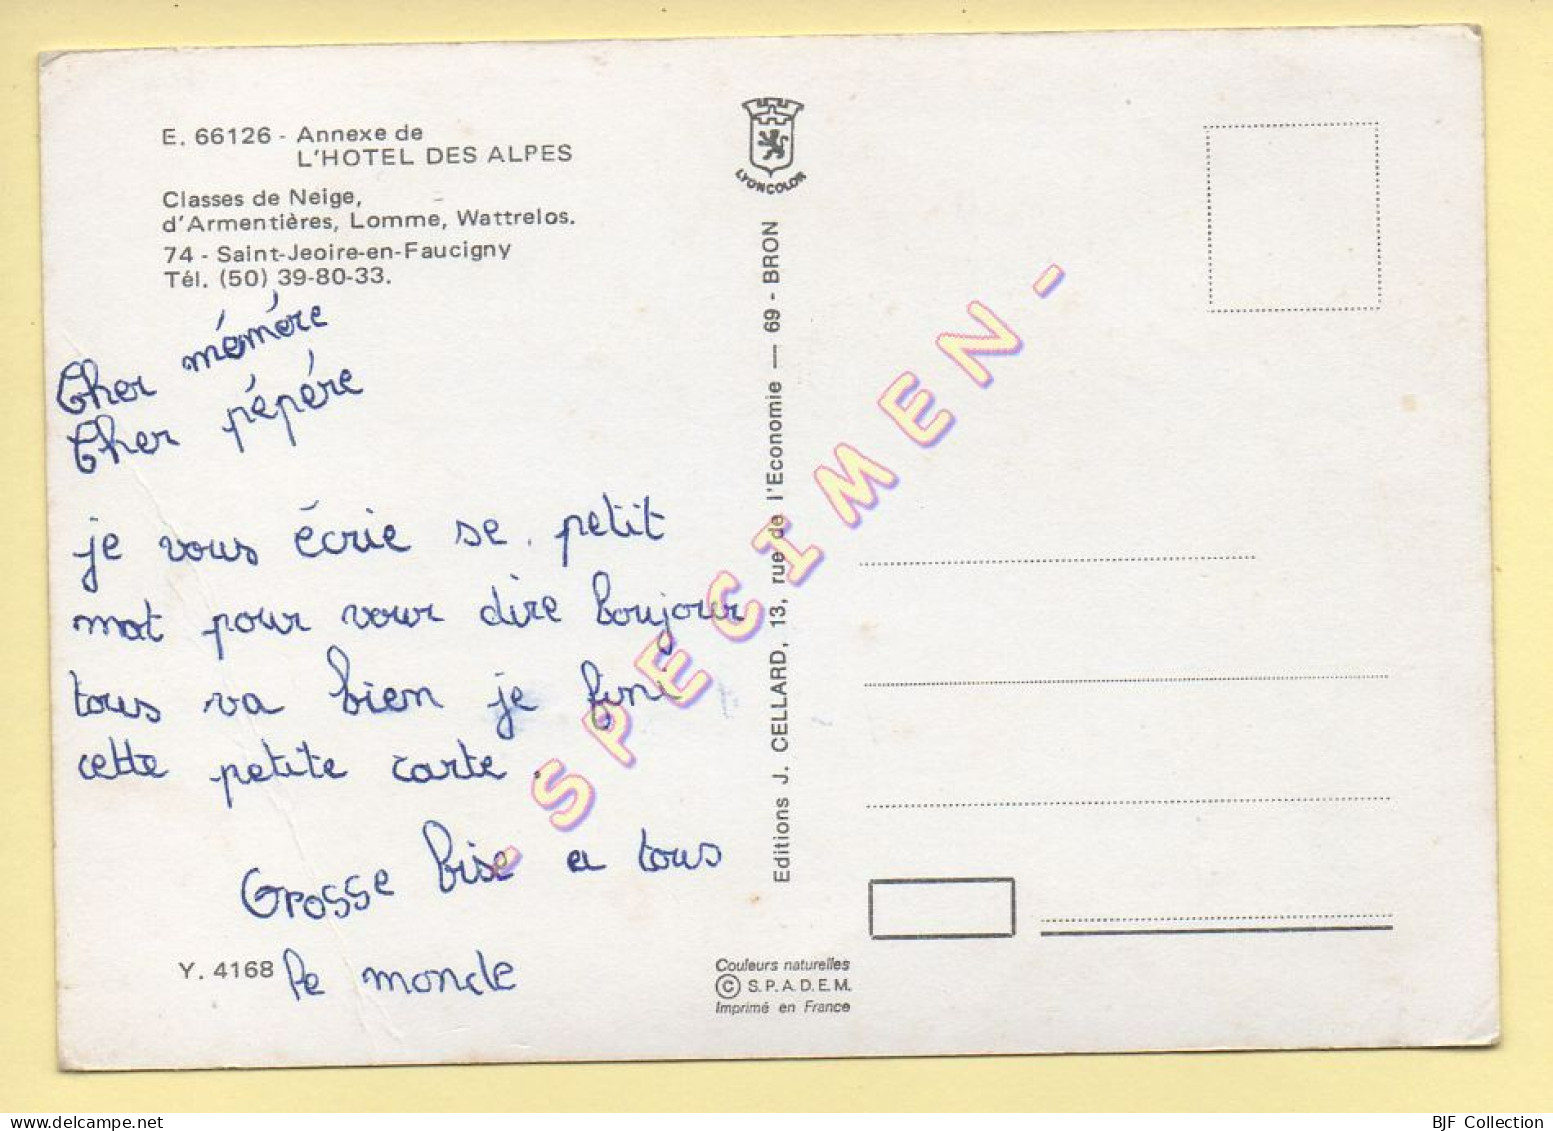 E. 66126 - Annexe de
L'HOTEL DES ALPES
Classes de Neige,
d'Armentières, Lomme, Wattrelos.
74 - Saint-Jeoire-en-Faucigny
Tél. (50) 39-80-33.
Cher mémére
Cher pépére
je vous écrie se petit
mot pour vour dire boujour
tous va bien je fini
cette petite carte.
Grosse bise a tous
le monde
Y. 4168
LYONCOLOR
Editions J. CELLARD, 13, rue de l'Economie — 69 - BRON
Couleurs naturelles
© S.P.A.D.E.M.
Imprimé en France
- SPECIMEN -
BJF Collection